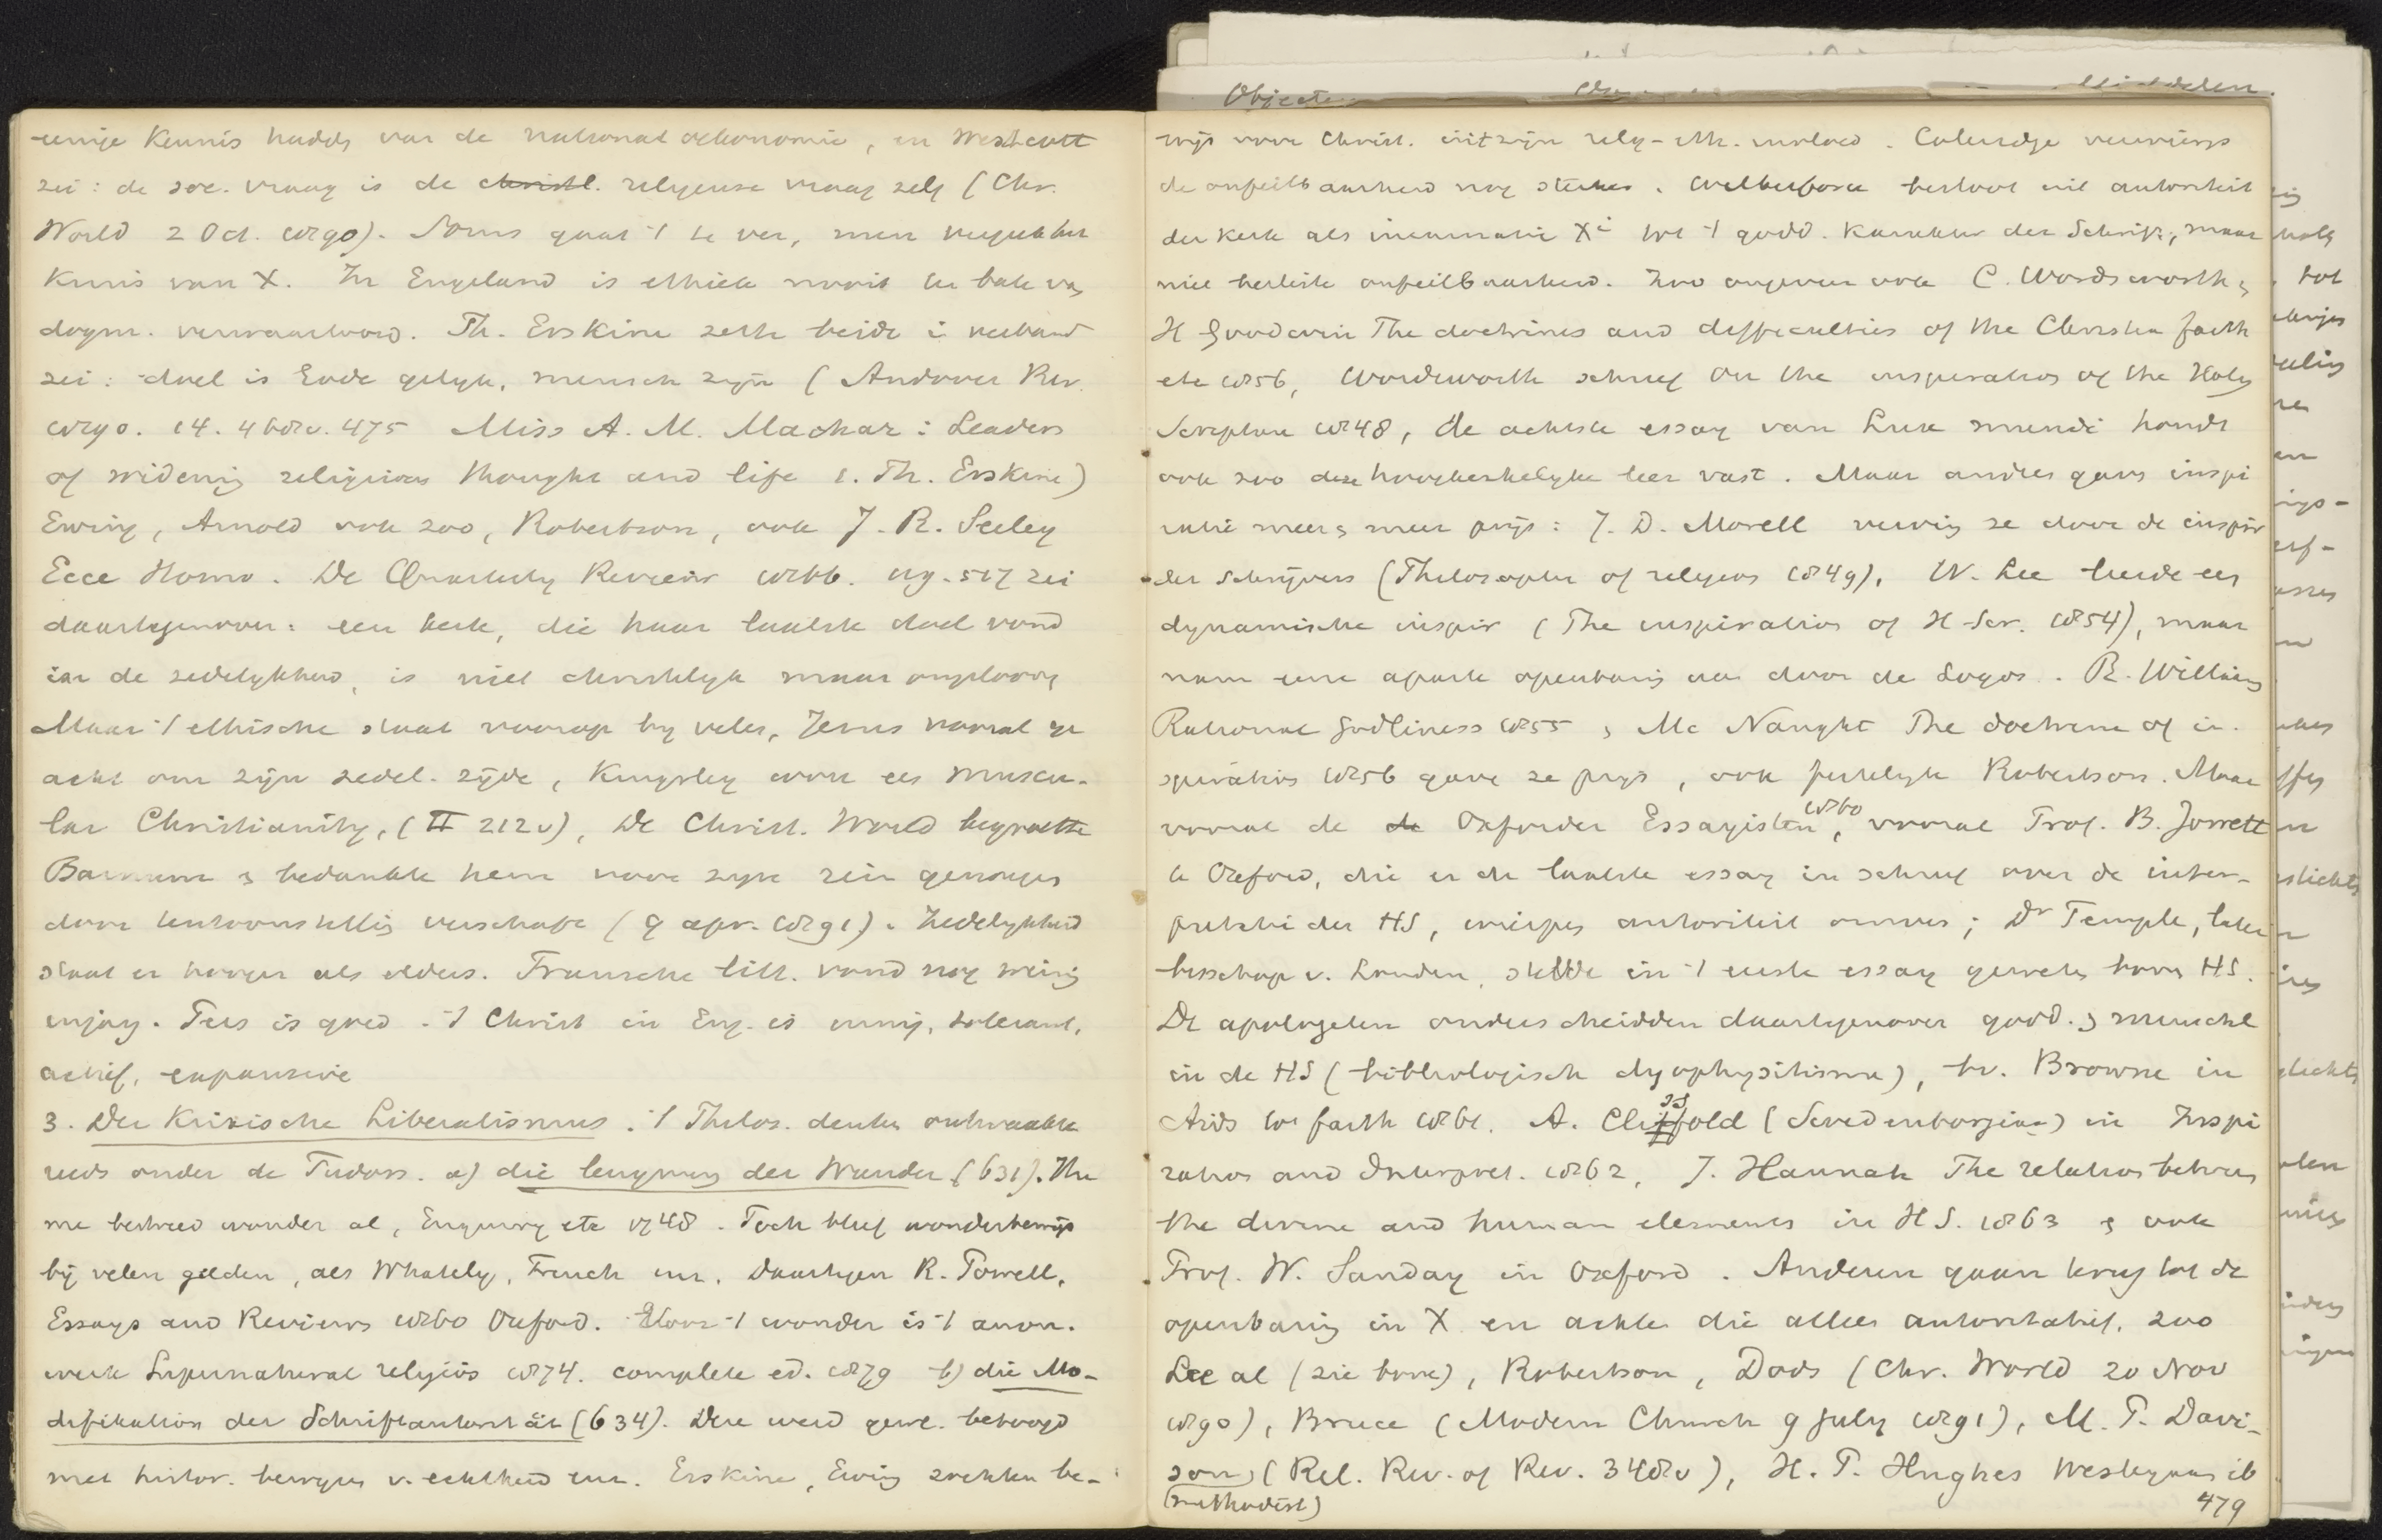 eenige kennis hadde van de nationaloekonomie, en Westcott
zei: de soc. vraag is de christl. religieuse vraag zelf (Chr.
World 2 Oct. 1890). Soms gaat 't te ver, men
kruis van X. In Engeland is ethiek nooit ten bate van
dogm. verwaarloosd. Th. Erskine zette beide in verband
zei: doel is Gode gelijk, mensch zijn (Andover Rev.
1890. 14. 468v. 475 Miss A. M. Machar: Leaders
of widening religious thought and life 1. Th. Erskine)
Ewing, Arnold ook zoo, Robertson, ook J. R. Seeley
Ecce Homo. De Quarterly Review 1866. 119. 517 zei
daartegenover: een kerk, die haar laatste doel vond
in de zedelykheid, is niet christelyk maar ongeloovig
Maar 't ethische staat voorop by velen, Jezus vooral ge
acht om zijn zedel. zijde, Kingsley won een muscu-
lar Christianity, (II 212v), De Christ. World begroette
Barnum & bedankte hem voor zyn rein genoegen
door tentoonstelling verschaft (9 apr. 1891). Zedelykheid
staat er hooger als elders. Fransche litt. vond nog weinig
ingang. Dies is goed. 't Christ in Eng. is innig, tolerant,
actief, expansive
3. Der Kritische Liberalismus. 't Philos. denken ontwaakte
reeds onder de Tudors. a) die leugnung der Wunder (631). Hu
me bestreed wonder al, Enquiry etc 1748. Toch bleef wonderbewijs
bij velen gelden, als Whately, Trench enz. Daartegen R. Powell,
Essays and Reviews 1860 Oxford. Voor 't wonder is 't anon.
werk Supernatural religion 1874. complete ed. 1879 b) die Mo-
difikation der Schriftautorität (634). Deze werd gew. betoogd
met histor. bewyzen v. echtheid enz. Erskine, Ewing zochten be-
wijs voor Christ. uit zijn relig-eth. invloed. Coleridge verwierp
de onfeilbaarheid nog sterker. Wilberforce besloot uit autoriteit
der kerk als incarnatie Xi tot 't godd. karakter der Schrift, maar
niet besliste onfeilbaarheid. Zoo ongeveer ook C. Wordsworth &
H Goodwin The doctrines and difficulties of the Christian faith
etc 1856, Wordsworth schreef On the inspiration of the Holy
Scripture 1848, de achtste essay van Lux mundi houdt
ook zoo deze hoogkerkelyke leer vast. Maar anders gaven inspi
ratie meer & meer prijs: J. D. Morell verving ze door de inspir
der schrijvers (Philosophy of religion 1849), W. Lee leerde een
dynamische inspir (The inspiration of H Scr. 1854), maar
nam eene aparte openbaring aan door de Logos. R. Williams
Rational Godliness 1855 & Mc Naught The doctrine of in-
spiration 1856 gave ze prijs, ook feitelyk Robertson. Maar
vooral de de Oxforder Essayisten 1860, vooral Prof. B. Jowett
te Oxford, die er de laatste essay in schreef over de inter-
pretatie der HS, wierpen autoriteit omver; Dr Temple, later
bisschop v. Londen, stelde in 't eerste essay geweten boven HS.
De apologeten onderscheidden daartegenover godd. & menschl
in de HS (bibliologisch dyophysitisme), bv. Browne in
Aids to faith 1861. A. Clissold (Swedenborgian) in Inspi
ration and Interpret. 1862, J. Hannah The relation between
the divine and human elements in HS. 1863 & ook
Prof. W. Sanday in Oxford. Anderen gaan terug tot de
openbaring in X en achten die alleen autoritatief. zoo
Lee al (zie boven), Robertson, Dods (Chr. World 20 Nov
1890), Bruce (Modern Church 9 July 1891), M. T. Davi-
son (Rel. Rev. of Rev. 348v), H. P. Hughes Wesleyaan ib
(methodist)
479